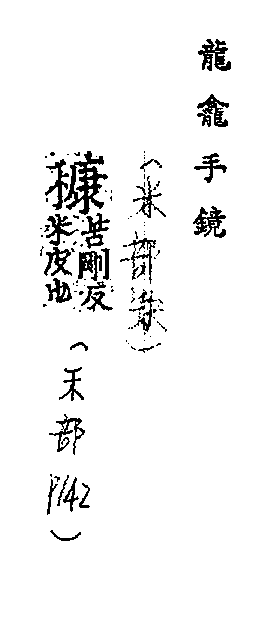 龍龕手鏡
（米部缺）
糠苦剛反
米皮也
（禾部
P142）